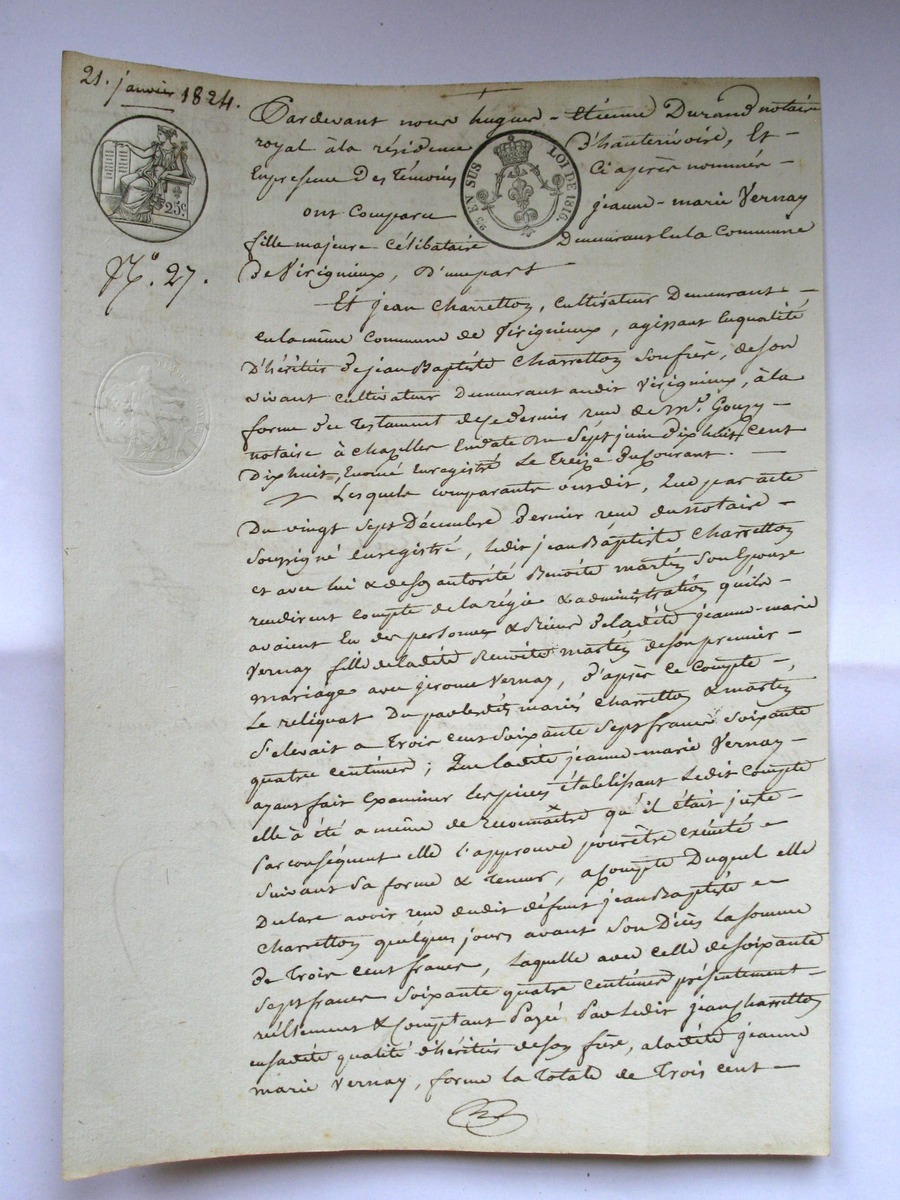 21. janvier 1824.
25c.
N.o 27.
25 EN SUS LOI DE 1816.
Pardevant nous hugues-Etienne Durand notaire
royal à la résidence d'hauterivoire, Et-
En presence Des Témoins Ci après nommés-
ont Comparu jeanne-marie Vernay
fille majeure Célibataire Demeurant En la Commune
De Virignieux, D'une part
Et jean Charretton, Cultivateur Demeurant-
en la même Commune de Virignieux, agissant En qualité
D'héritier De jean Baptiste Charretton son frère, de son
vivant cultivateur Demeurant audit Virignieux, à la
forme Du Testament de ce dernier reçu de m.e Gouzy-
notaire à chazelles En date du Sept juin Dix huit Cent
Dix huit, Enoncé Enregistré Le Treize Du Courant.
Lesquels comparants ont dit, Que par acte
Du vingt sept Décembre Dernier reçu du notaire-
soussigné enregistré, Ledit jean Baptiste Charretton
et avec lui & de son autorité Benoite martin Son Epouse
rendirent compte de la régie & administration qu'ils-
avaient Eu des personnes & Biens De ladite jeanne-marie
Vernay fille de ladite Benoite martin de son premier-
mariage avec jerome Vernay, D'après ce Compte-,
Le reliquat Du par lesdits mariés Charretton & martin
S'elevait a Trois cent soixante sept francs soixante
quatre centimes; Que ladite jeanne-marie Vernay-
ayant fait Examiner les pièces établissant Ledit Compte
elle à été a même de reconnaître qu'il était juste-
Par conséquent elle l'approuve pour être exécuté
suivant sa forme & teneur, a compte Duquel elle
Declare avoir reçu dudit défunt jean Baptiste
Charretton quelques jours avant son Décès La somme
de Trois cent francs, Laquelle avec celle de soixante
sept francs soixante quatre centimes présentement-
réellement & comptant Payée Par Ledit jean Charretton
en sadite qualité d'héritier de son frère, a ladite jeanne
marie Vernay, forme la Totale de Trois cent-